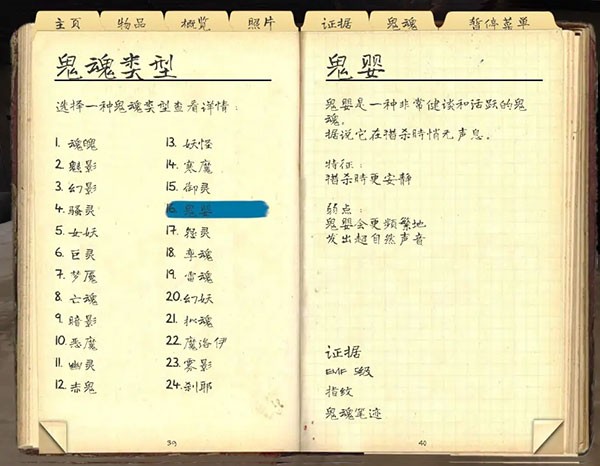 主页 物品 概览 照片 证据 鬼魂 暂停菜单
鬼魂类型
选择一种鬼魂类型查看详情：
1. 魂魄
2. 魅影
3. 幻影
4. 骚灵
5. 女妖
6. 巨灵
7. 梦魇
8. 亡魂
9. 暗影
10. 恶魔
11. 幽灵
12. 赤鬼
13. 妖怪
14. 寒魔
15. 御灵
16. 鬼婴
17. 怨灵
18. 孪魂
19. 雷魂
20. 幻妖
21. 拟魂
22. 魔洛伊
23. 雾影
24. 刹耶
39
鬼婴
鬼婴是一种非常健谈和活跃的鬼
魂。
据说它在猎杀时悄无声息。
特征：
猎杀时更安静
弱点：
鬼婴会更频繁地
发出超自然声音
证据
EMF 5级
指纹
鬼魂笔迹
40